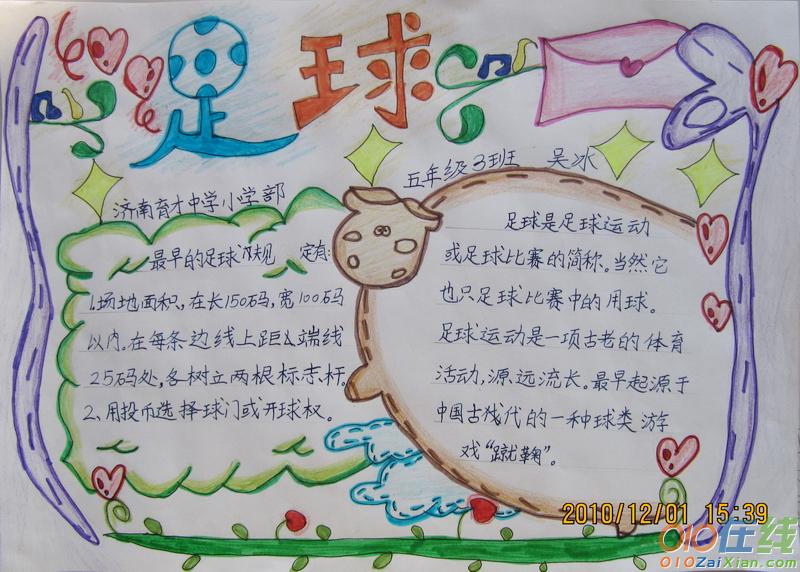 足球
五年级3班 吴冰
济南育才中学小学部
最早的足球 规定有:
1.场地面积,在长150码,宽100码
以内。在每条边线上距 端线
25码处,各树立两根标志杆。
2、用投币选择球门或开球权。
足球是足球运动
或足球比赛的简称。当然它
也只足球比赛中的用球。
足球运动是一项古老的体育
活动,源远流长。最早起源于
中国古 代的一种球类游
戏“蹴鞠”。
2010/12/01 15:39
010在线
010ZaiXian.com